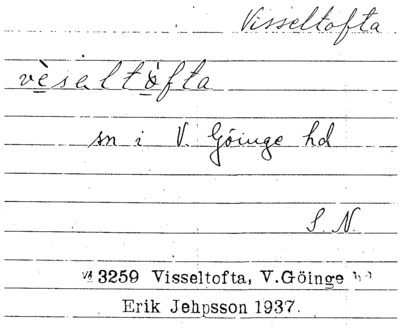 Visseltofta
vèsältòfta
sn i V. Göinge hd
S. N.
VA 3259 Visseltofta, V.Göinge hd
Erik Jehpsson 1937.